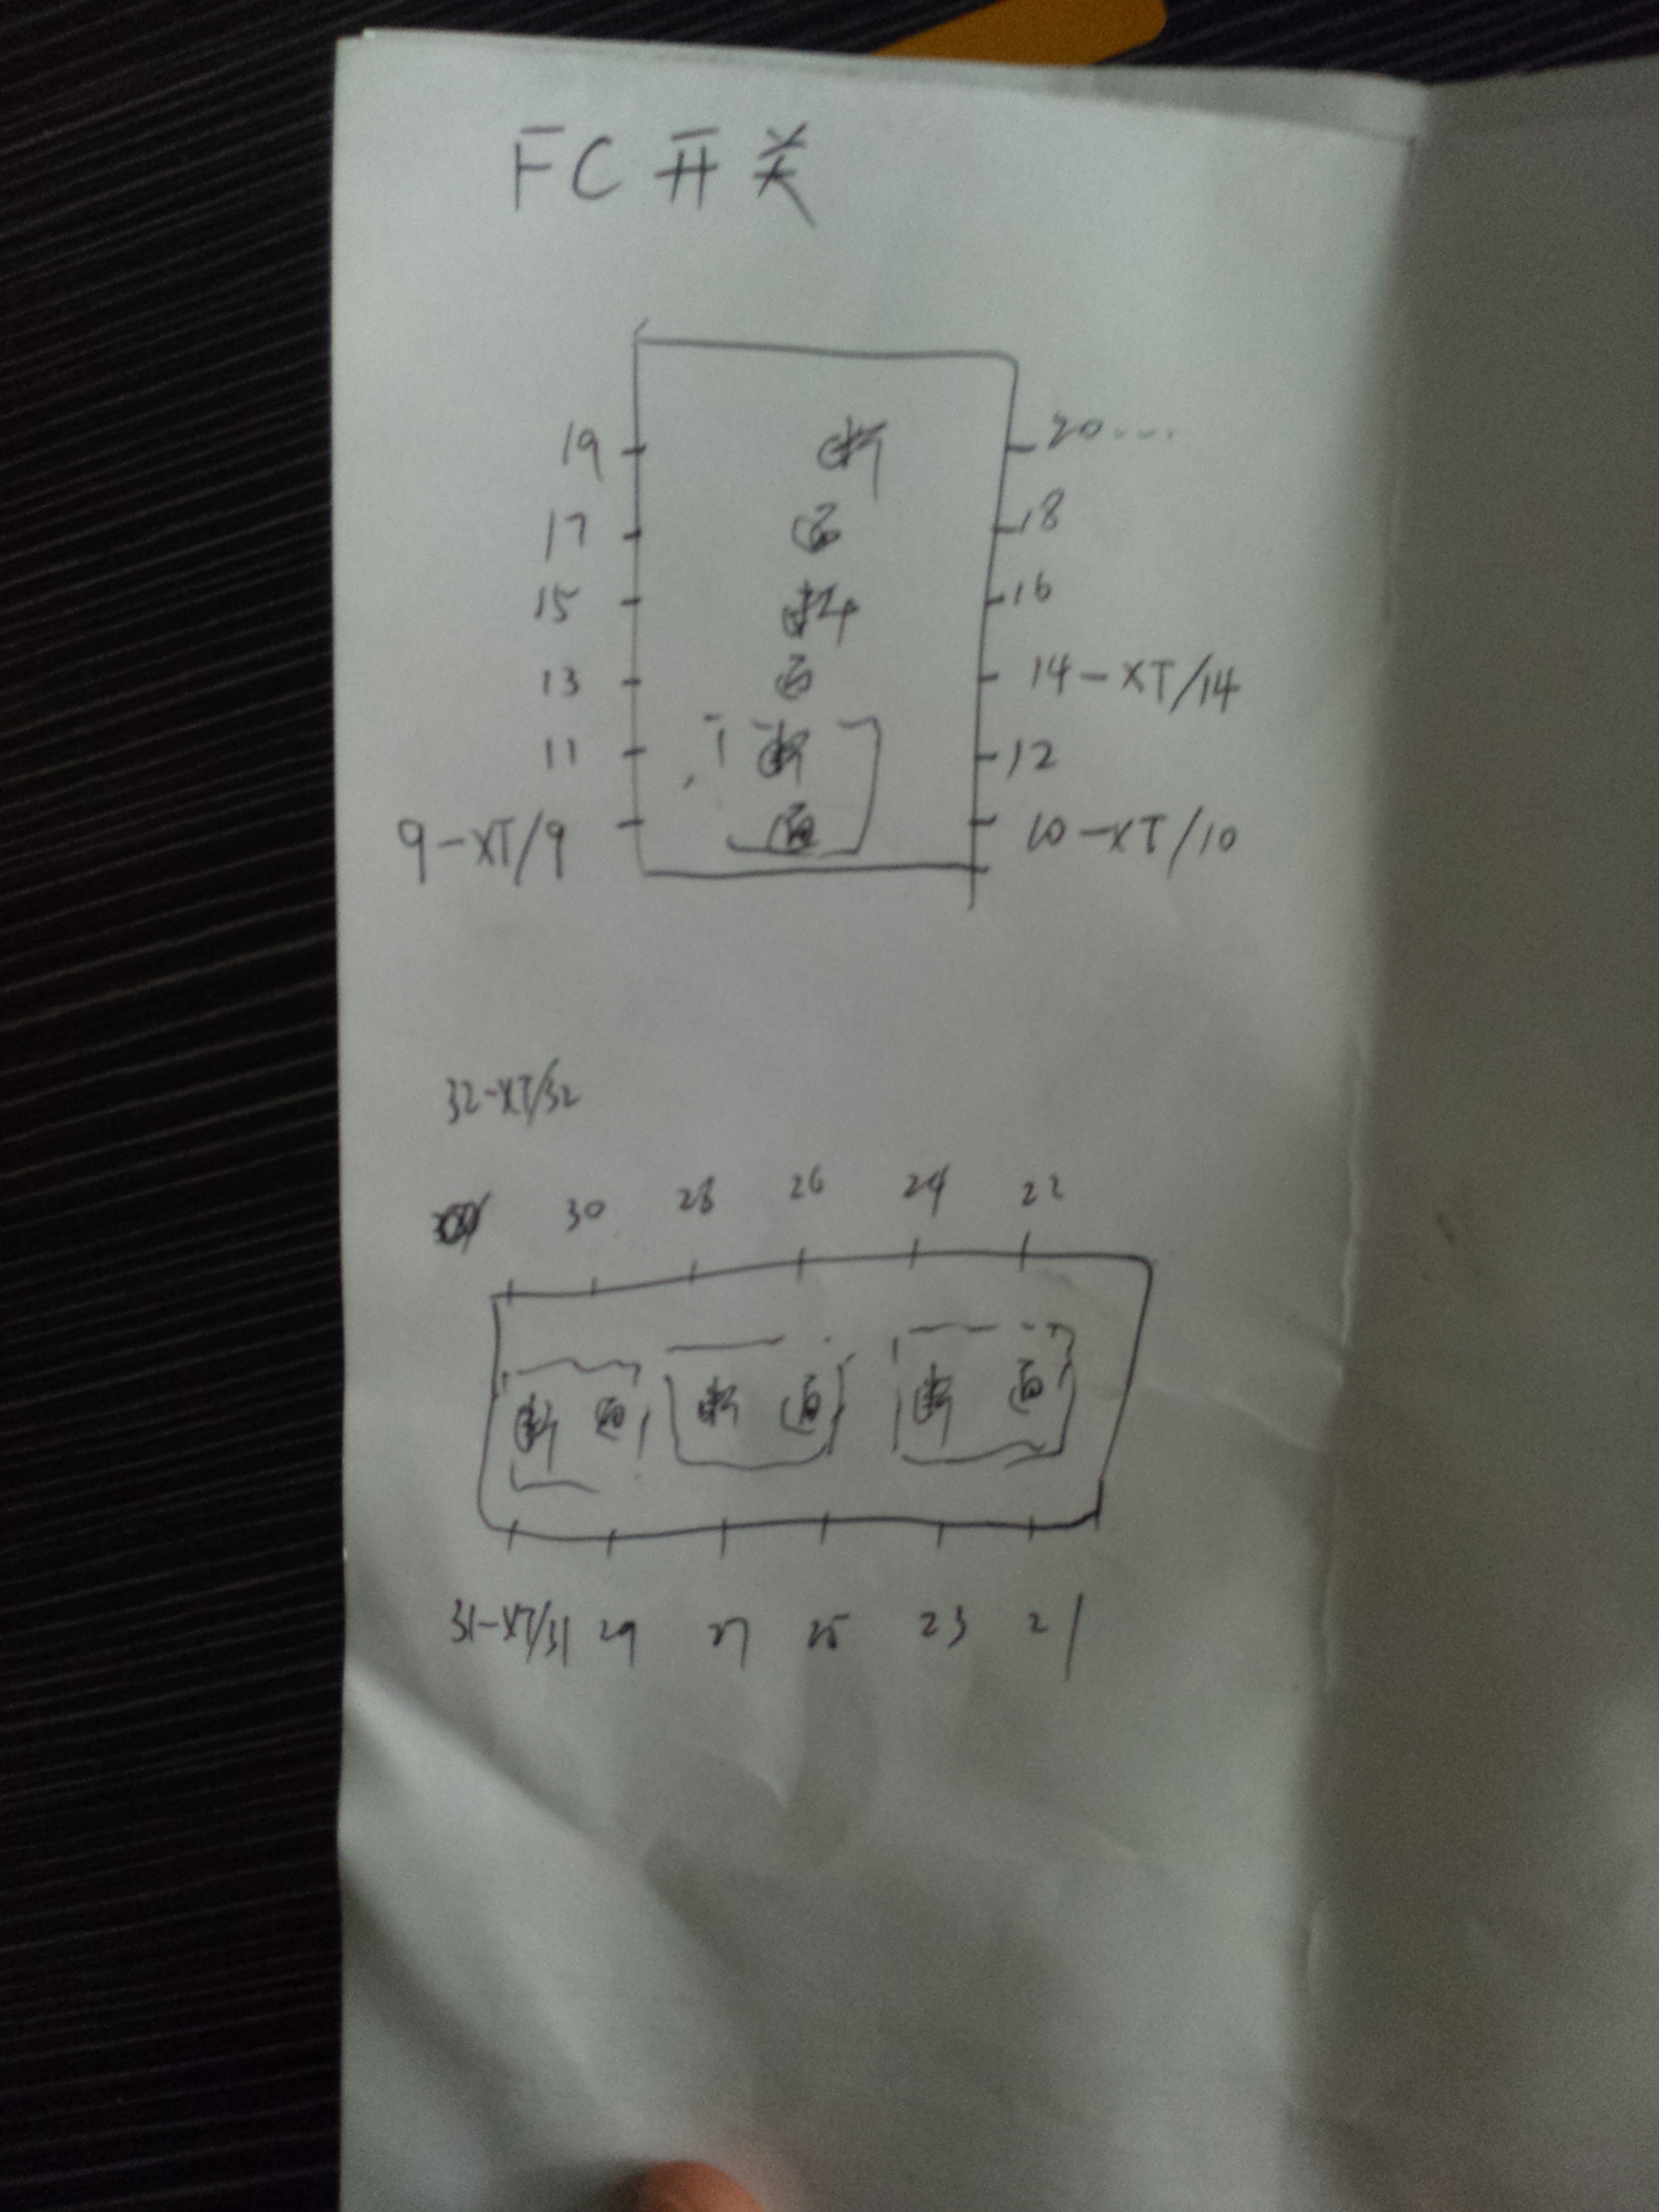 FC开关
19 断 20...
17 通 18
15 断 16
13 通 14-XT/14
11 断 12
9-XT/9 通 10-XT/10
32-XT/32
30 28 26 24 22
断 通 断 通 断 通
31-XT/31 29 27 25 23 21